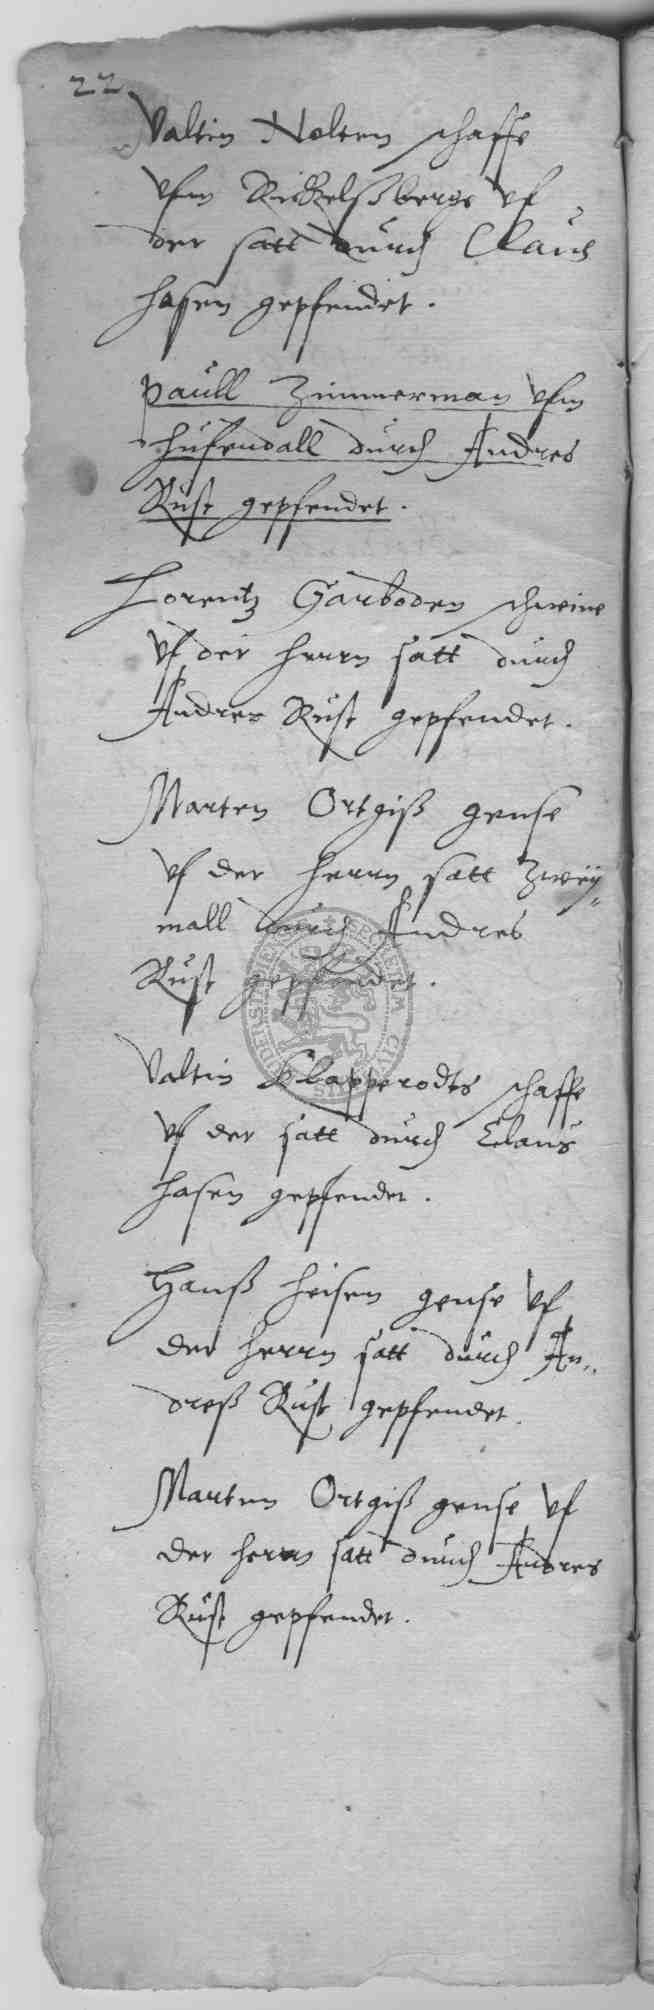 22
Valtin Nolten schaffe
vfm Rickelßberge vf
der satt durch Claus
hasen gepfendet.
Paull Zimmerman vfm
hufendall durch Andres
Rust gepfendet.
Lorentz Garboden schweine
vf der herrn satt durch
Andres Rust gepfendet.
Marten Ortgiß gense
vf der herrn satt zwey=
mall durch Andres
Rust gepfendet.
Valtin Klapperodts schaffe
vf der satt durch Claus
hasen gepfendet.
Hanß heisen gense vf
der herrn satt durch An=
dreß Rust gepfendet.
Marten Ortgiß gense vf
der herrn satt durch Andres
Rust gepfendet.